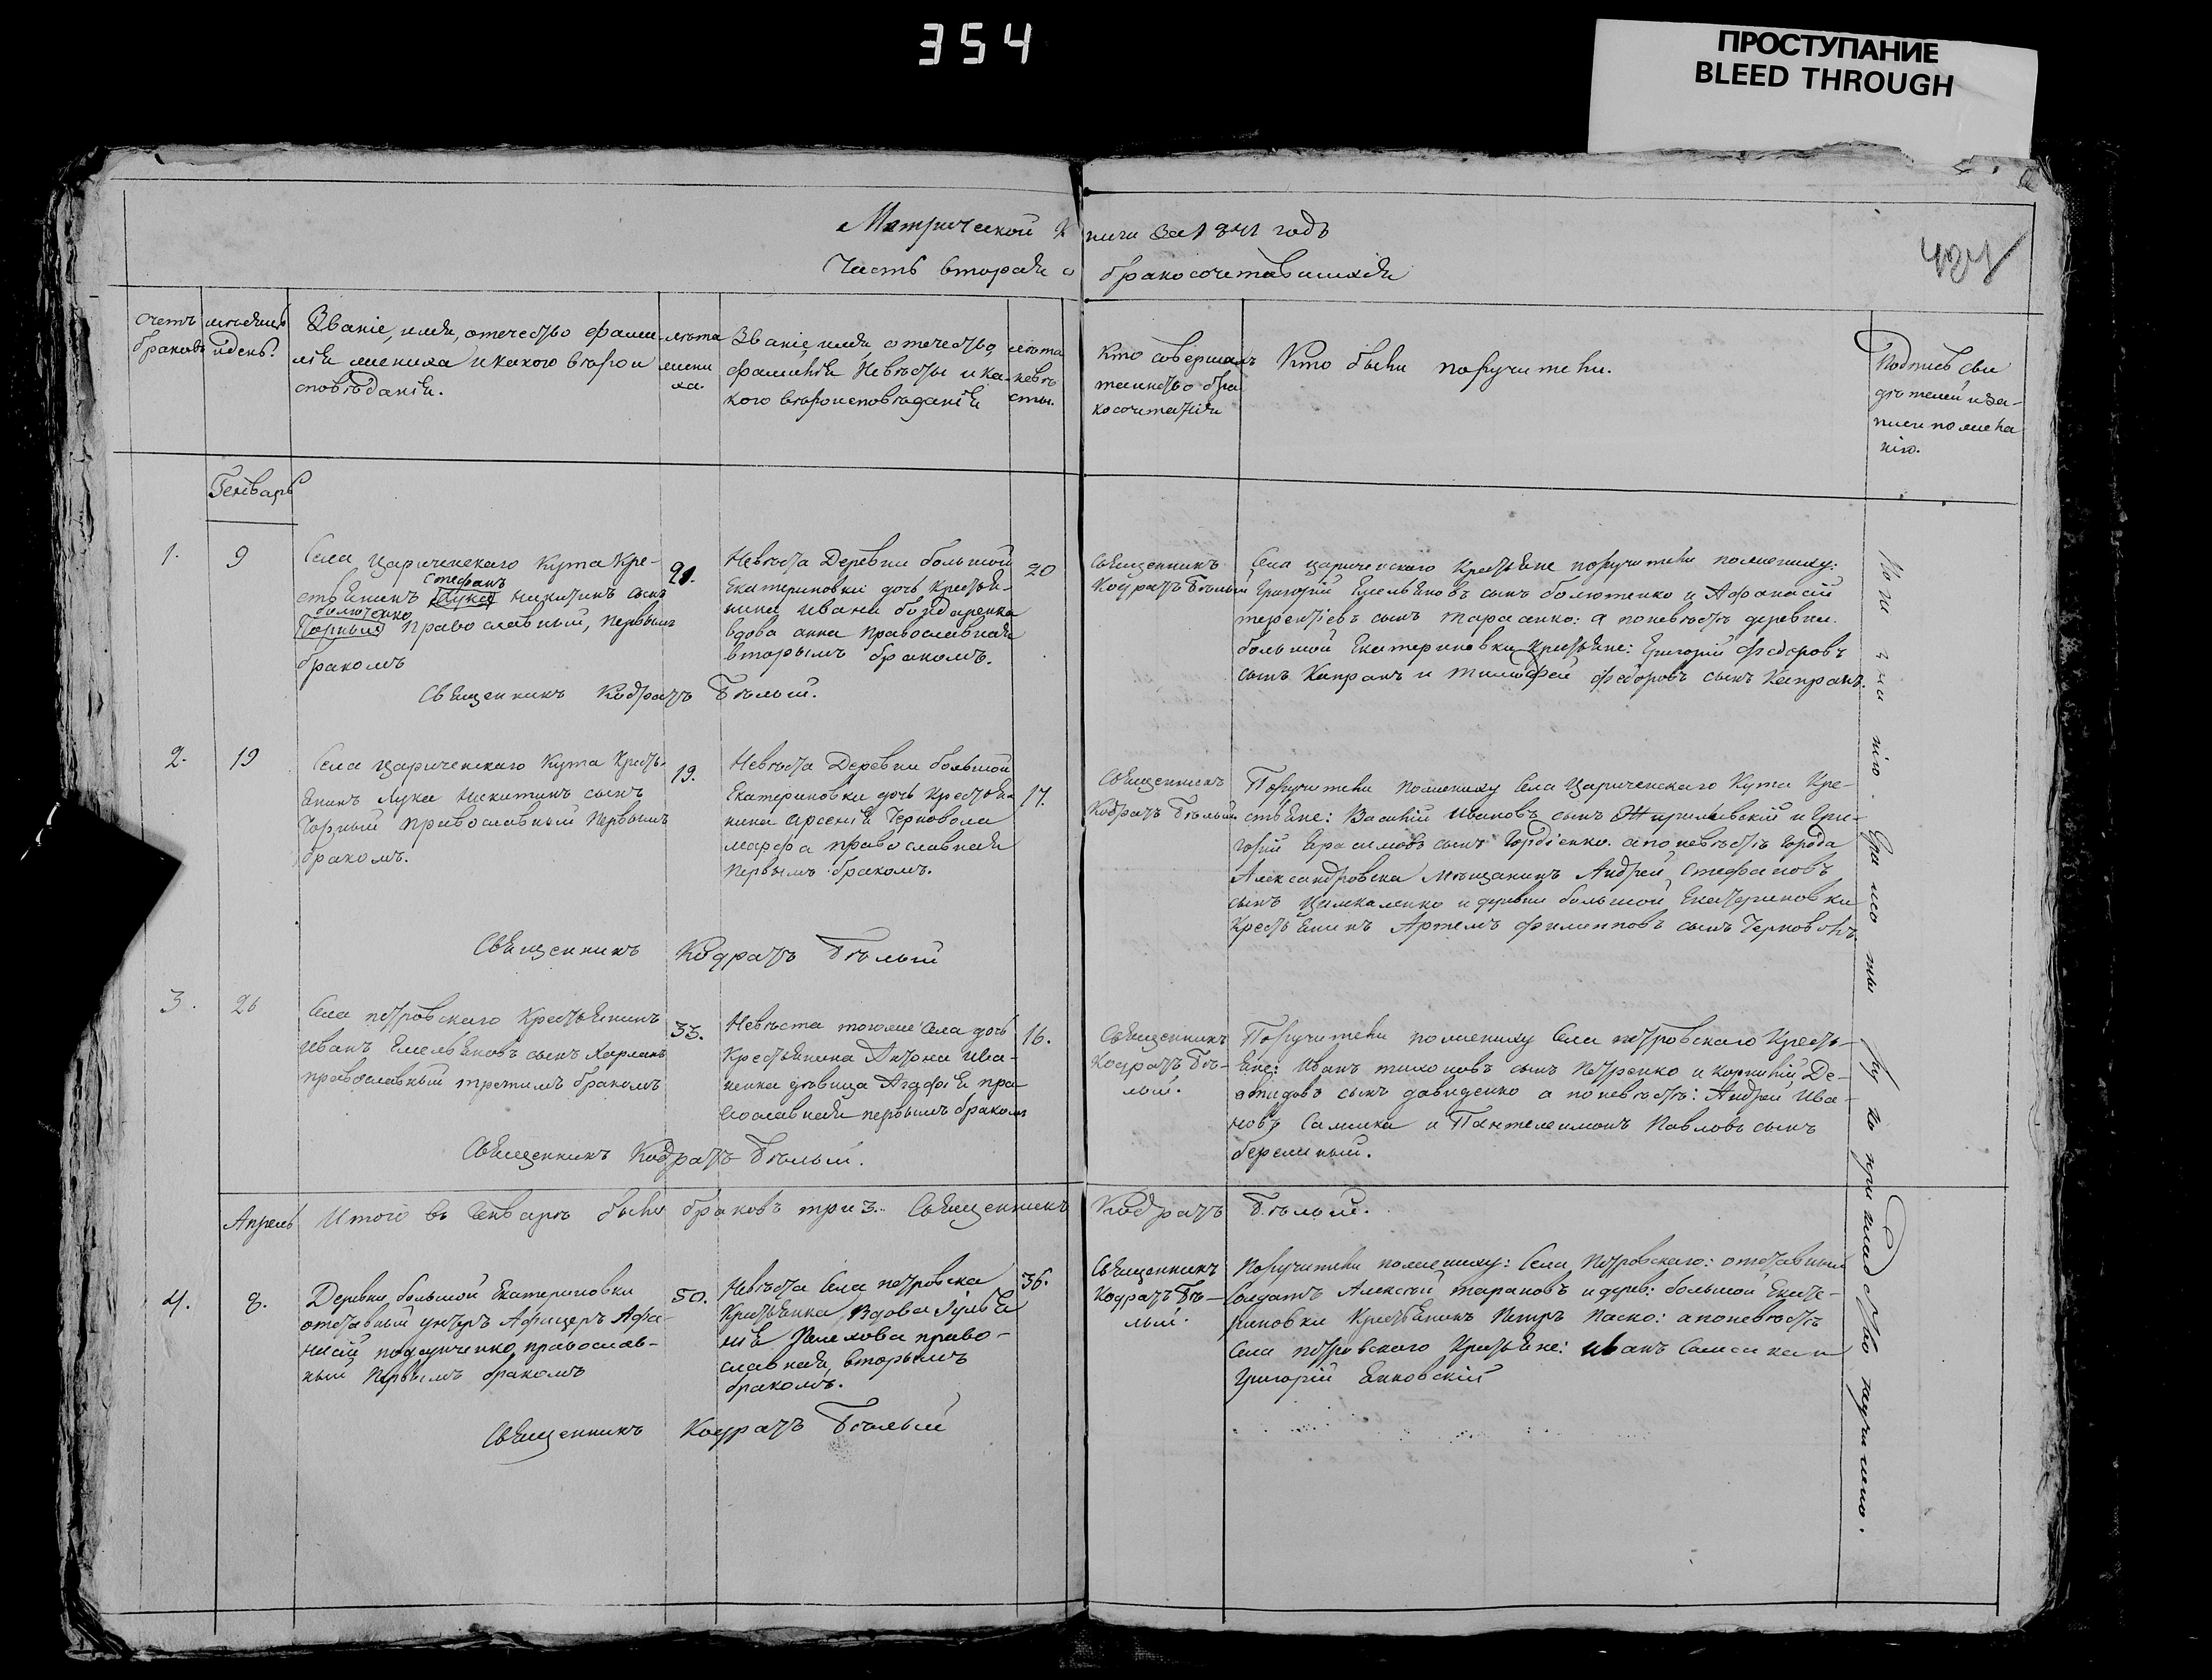 354
ПРОСТУПАНИЕ
BLEED THROUGH
Метрической книги за 1841 годъ
Часть вторая о бракосочетавшихся
счетъ браковъ
мѣсяцъ и день.
Званіе, имя, отечество фами-
лія жениха и какого вѣрои
сповѣданія.
лѣта
жени
ха.
Званіе, имя отечество,
фамилія Невѣсты и ка-
кого вѣроисповѣданія
лѣта
невѣ
сты.
Кто совершалъ
таинство бра
косочетанія
Кто были поручители.
Подпись сви
дѣтелей и за-
писи по жела
нію.
Генварь
1.
9
Села Цариченскаго Кута Кре-
Стефанъ
стьянинъ Лука Никитинъ сынъ
болютенко
Чорный православный, первымъ
бракомъ
21.
Невѣста Деревни большой
Екатериновки дочь крестья-
нина Ивана
вдова анна православная
вторымъ бракомъ.
20
Священникъ Кодратъ Бѣлый.
Священникъ
Кодратъ Бѣлый
Села цариченскаго Крестьяне поручители по жениху:
Григорій Емельяновъ сынъ болютенко и Афанасій
терентіевъ сынъ тараенко: а по невѣстѣ деревни
большой Екатериновки Крестьяне: Григорій Федоровъ
сынъ Капранъ и тимофей федоровъ сынъ Капранъ.
2.
19
Села Цариченскаго Кута Кресть-
янинъ Лука Никитинъ сынъ
Чорный православный первымъ
бракомъ.
19.
Невѣста Деревни большой
Екатериновки дочь крестья-
нина Арсенія Черновола
марфа православная
первымъ бракомъ.
17.
Священникъ Кодратъ Бѣлый
Священникъ
Кодратъ Бѣлый
Поручители по жениху Села Цариченскаго Кута Кре-
стьяне: Василій Ивановъ сынъ и Гри-
горій Герасимовъ сынъ Гордіенко. а по невѣстѣ города
Александровска Мѣщанинъ Андрей Стефановъ
сынъ Цимкаленко и деревни большой Екатериновки
Крестьянинъ Артемъ филипповъ сынъ Черноволъ.
3.
26
Села петровскаго Крестьянинъ
Иванъ Емельяновъ сынъ Харланъ
православный третимъ бракомъ
33.
Невѣста тогоже Села дочь
Крестьянина Антона Ива-
ненка дѣвица Агафія пра-
вославная первымъ бракомъ
16.
Священникъ Кодратъ Бѣлый.
Священникъ
Кодратъ Бѣ-
лый.
Поручители по жениху Села петровскаго Кресть-
яне: Иванъ тихоновъ сынъ Петренко и корнилій Де-
мидовъ сынъ давиденко а по невѣстѣ: Андрей Ива-
новъ Самикa и Пантелеимонъ Павловъ сынъ
бережный.
Итого въ Генварѣ было браковъ три 3. Священникъ Кодратъ Бѣлый.
Апрель
4.
8.
Деревни большой Екатериновки
отставный унтеръ Афицеръ Афа-
насій православ-
ный Первымъ бракомъ
50.
Невѣста Села петровска
Крестьянка вдова Іулья-
нія право-
славная, вторымъ
бракомъ.
36.
Священникъ Кодратъ Бѣлый
Священникъ
Кодратъ Бѣ-
лый.
Поручители по жениху: Села Петровскаго: отставный
Солдатъ Алексѣй тарановъ и дерев: большой Екате-
риновки Крестьянинъ Петръ Паско: а по невѣстѣ
Села петровскаго Крестьяне: иванъ и
Григорій Янковскій
По не знанію Грамоты руку не приложили.